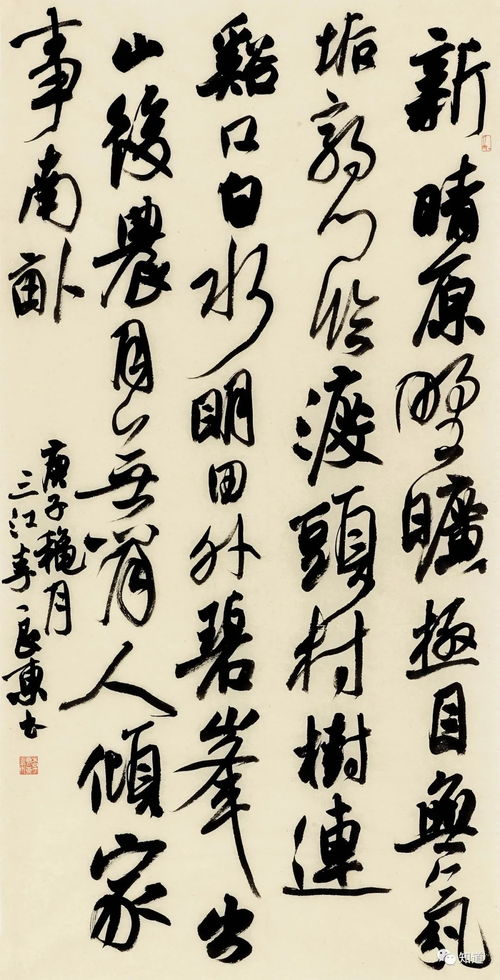 新晴原野曠極目無氛
垢郭門臨渡頭村樹連
谿口白水明田外碧峯出
山後農月無閒人傾家
事南畝
庚子穐月
三江李良東书
知道